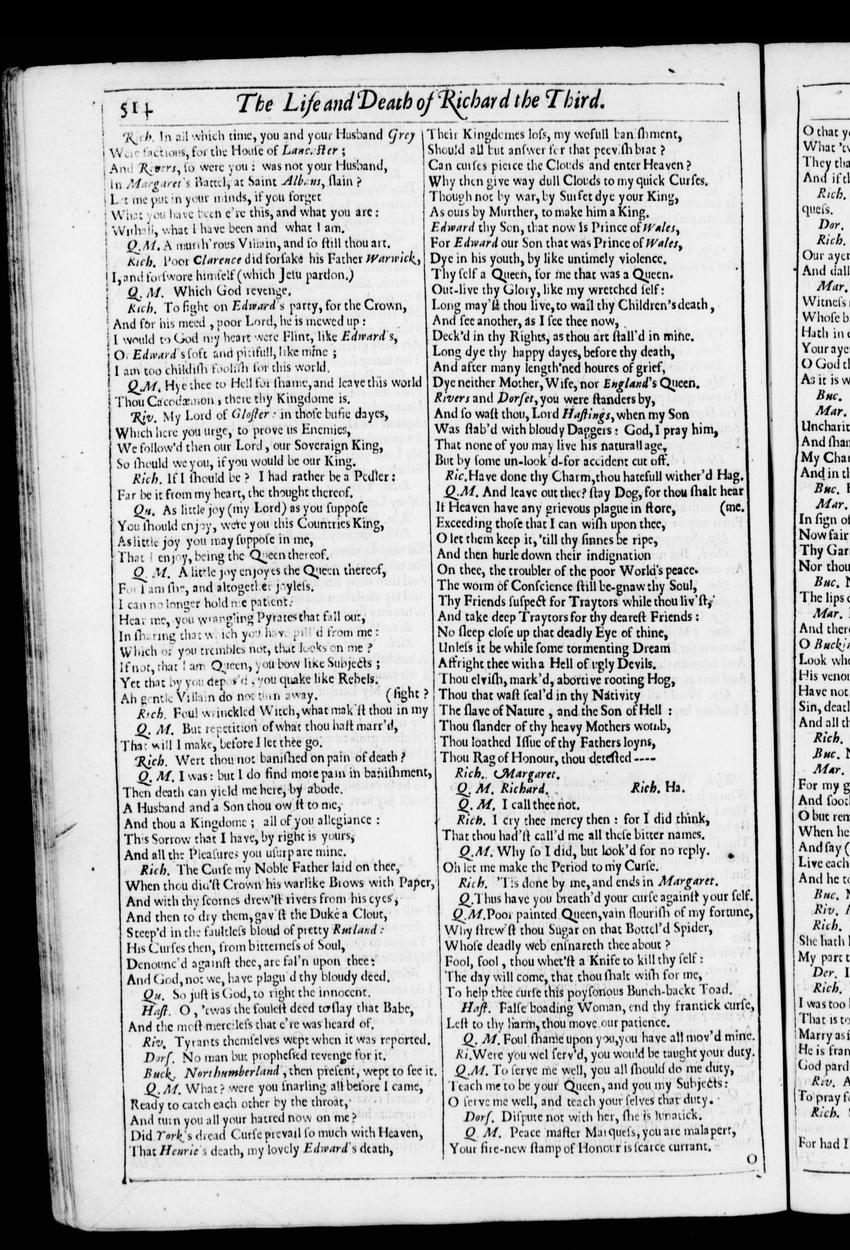 514
The Life and Death of Richard the Third.
Rich. In all which time, you and your Husband Grey
Were factious, for the House of Lancaster;
And Rivers, so were you: was not your Husband,
In Margaret's Battel, at Saint Albans, slain?
Let me put in your minds, if you forget
What you have been e're this, and what you are:
Withall, what I have been and what I am.
Q.M. A murth'rous Villain, and so still thou art.
Rich. Poor Clarence did forsake his Father Warwick,
I, and forswore himself (which Jesu pardon.)
Q. M. Which God revenge.
Rich. To fight on Edward's party, for the Crown,
And for his meed, poor Lord, he is mewed up:
I would to God my heart were Flint, like Edward's,
Or Edward's soft and pitifull, like mine;
I am too childish foolish for this world.
Q.M. Hye thee to Hell for shame, and leave this world
Thou Cacodæmon, there thy Kingdome is.
Riv. My Lord of Gloster: in those busie dayes,
Which here you urge, to prove us Enemies,
We follow'd then our Lord, our Soveraign King,
So should we you, if you would be our King.
Rich. If I should be? I had rather be a Pedler:
Far be it from my heart, the thought thereof.
Qu. As little joy (my Lord) as you suppose
You should enjoy, were you this Countries King,
As little joy you may suppose in me,
That I enjoy, being the Queen thereof.
Q. M. A little joy enjoyes the Queen thereof,
For I am she, and altogether joyless.
I can no longer hold me patient.
Hear me, you wrangling Pyrates that fall out,
In sharing that which you have pill'd from me:
Which of you trembles not, that looks on me?
If not, that I am Queen, you bow like Subjects;
Yet that by you depos'd, you quake like Rebels.
Ah gentle Villain do not turn away. (sight?
Rich. Foul wrinckled Witch, what mak'st thou in my
Q. M. But repetition of what thou hast marr'd,
That will I make, before I let thee go.
Rich. Wert thou not banished on pain of death?
Q. M. I was: but I do find more pain in banishment,
Then death can yield me here, by abode.
A Husband and a Son thou ow'st to me,
And thou a Kingdome; all of you allegiance:
This Sorrow that I have, by right is yours,
And all the Pleasures you usurp are mine.
Rich. The Curse my Noble Father laid on thee,
When thou did'st Crown his warlike Brows with Paper,
And with thy scornes drew'st rivers from his eyes,
And then to dry them, gav'st the Duke a Clout,
Steep'd in the faultless bloud of pretty Rutland:
His Curses then, from bitterness of Soul,
Denounc'd against thee, are fal'n upon thee:
And God, not we, have plagu'd thy bloudy deed.
Qu. So just is God, to right the innocent.
Hast. O, 'twas the foulest deed to slay that Babe,
And the most merciless that e're was heard of.
Riv. Tyrants themselves wept when it was reported.
Dors. No man but prophesied revenge for it.
Buck. Northumberland, then present, wept to see it.
Q. M. What? were you snarling all before I came,
Ready to catch each other by the throat,
And turn you all your hatred now on me?
Did York's dread Curse prevail so much with Heaven,
That Henrie's death, my lovely Edward's death,
Their Kingdomes loss, my wofull banishment,
Should all but answer for that peevish brat?
Can curses pierce the Clouds and enter Heaven?
Why then give way dull Clouds to my quick Curses.
Though not by war, by Surfet dye your King,
As ours by Murther, to make him a King.
Edward thy Son, that now Is Prince of Wales,
For Edward our Son that was Prince of Wales,
Dye in his youth, by like untimely violence.
Thy self a Queen, for me that was a Queen.
Out-live thy Glory, like my wretched self:
Long may'st thou live, to wail thy Children's death,
And see another, as I see thee now,
Deck'd in thy Rights, as thou art stall'd in mine.
Long dye thy happy dayes, before thy death,
And after many length'ned houres of grief,
Dye neither Mother, Wife, nor England's Queen.
Rivers and Dorset, you were standers by,
And so wast thou, Lord Hastings, when my Son
Was stab'd with bloudy Daggers: God, I pray him,
That none of you may live his naturall age,
But by some un-look'd-for accident cut off.
Ric. Have done thy Charm, thou hatefull wither'd Hag.
Q.M. And leave out thee? stay Dog, for thou shalt hear
If Heaven have any grievous plague in store, (me.
Exceeding those that I can wish upon thee,
O let them keep it, 'till thy sinnes be ripe,
And then hurle down their indignation
On thee, the troubler of the poor World's peace.
The worm of Conscience still be-gnaw thy Soul,
Thy Friends suspect for Traytors while thou liv'st,
And take deep Traytors for thy dearest Friends:
No sleep close up that deadly Eye of thine,
Unless it be while some tormenting Dream
Affright thee with a Hell of ugly Devils.
Thou elvish, mark'd, abortive rooting Hog,
Thou that wast seal'd in thy Nativity
The slave of Nature, and the Son of Hell:
Thou slander of thy heavy Mothers womb,
Thou loathed Issue of thy Fathers loyns,
Thou Rag of Honour, thou detested ----
Rich. Margaret.
Q. M. Richard. Rich. Ha.
Q. M. I call thee not.
Rich. I cry thee mercy then: for I did think,
That thou had'st call'd me all these bitter names.
Q.M. Why so I did, but look'd for no reply.
Oh let me make the Period to my Curse.
Rich. 'Tis done by me, and ends in Margaret.
Q. Thus have you breath'd your curse against your self.
Q.M. Poor painted Queen, vain flourish of my fortune,
Why strew'st thou Sugar on that Bottel'd Spider,
Whose deadly web ensnareth thee about?
Fool, fool, thou whet'st a Knife to kill thy self:
The day will come, that thou shalt wish for me,
To help thee curse this poysonous Bunch-backt Toad.
Hast. False boading Woman, end thy frantick curse,
Lest to thy harm, thou move our patience.
Q. M. Foul shame upon you, you have all mov'd mine.
Ri. Were you wel serv'd, you would be taught your duty.
Q.M. To serve me well, you all should do me duty,
Teach me to be your Queen, and you my Subjects:
O serve me well, and teach your selves that duty.
Dors. Dispute not with her, she is lunatick.
Q. M. Peace master Marquess, you are malapert,
Your fire-new stamp of Honour is scarce currant.
O
O that y
What 'tw
They tha
And if th
Rich.
quess.
Dor.
Rich.
Our ayer
And dall
Mar.
Witness
Whose b
Hath in e
Your aye
O God th
As it is w
Buc.
Mar.
Uncharit
And sham
My Char
And in th
Buc.
Mar.
In sign of
Now fair
Thy Gar
Nor thou
Buc. N
The lips o
Mar. I
And there
O Buckin
Look whe
His venom
Have not
Sin, death
And all th
Rich.
Buc. N
Mar.
For my g
And sooth
O but rem
When he
And say (
Live each
And he to
Buc. N
Riv. A
Rich.
She hath h
My part t
Der. I
Rich.
I was too h
That is to
Marry as f
He is fran
God pard
Riv. A
To pray fo
Rich.
For had I